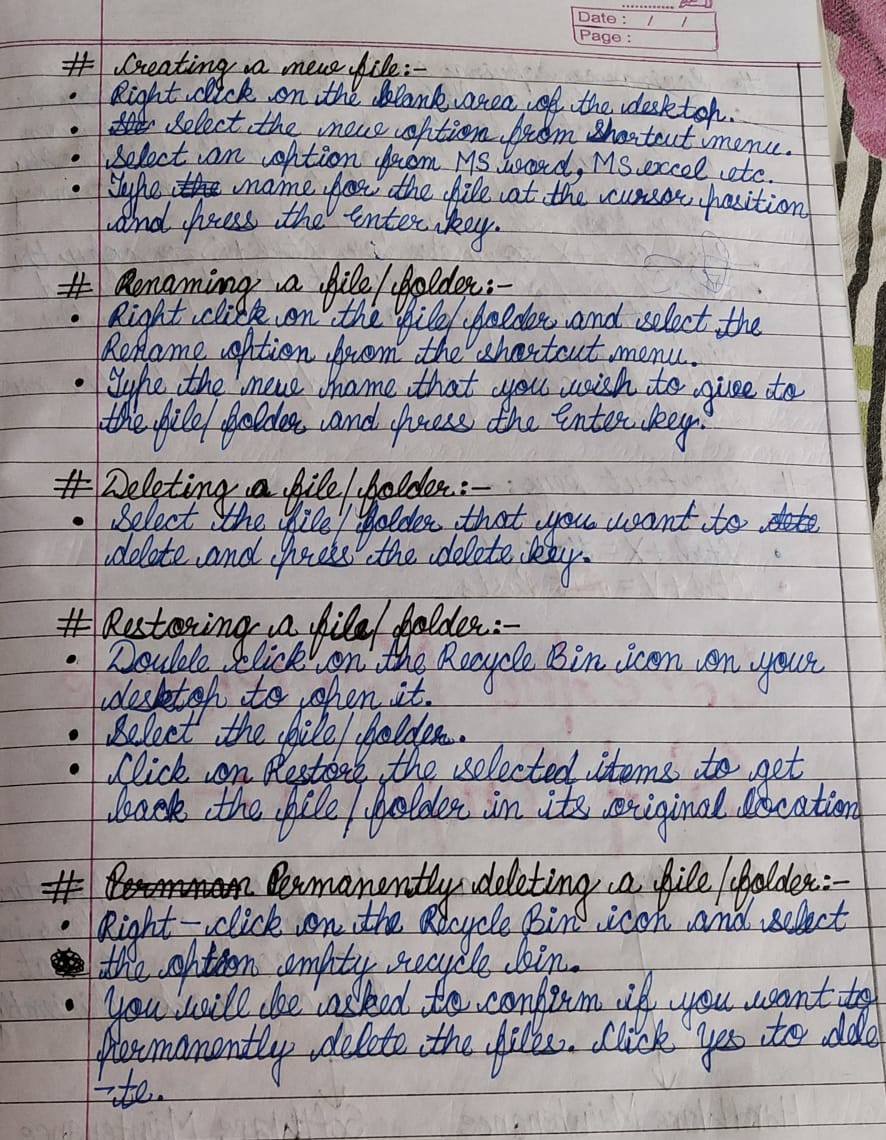 Date : / /
Page :
# Creating a new file:-
• Right click on the blank area of the desktop.
• Select the new option from Shortcut menu.
• Select an option from MS word, MS excel etc.
• Type name for the file at the cursor position
and press the Enter key.
# Renaming a file/folder:-
• Right click on the file/folder and select the
Rename option from the shortcut menu.
• Type the new name that you wish to give to
the file/folder and press the Enter key.
# Deleting a file/folder:-
• Select the file/folder that you want to
delete and press the delete key.
# Restoring a file/folder:-
• Double click on the Recycle Bin icon on your
desktop to open it.
• Select the file/folder.
• Click on Restore the selected items to get
back the file/folder in its original location
# Permanently deleting a file/folder:-
• Right-click on the Recycle Bin icon and select
the option empty recycle bin.
• You will be asked to confirm if you want to
permanently delete the files. Click yes to dele
-te.